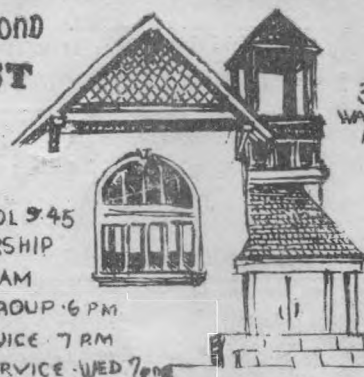 OND
ST
WA
OL 9:45
RSHIP
AM
ROUP · 6 PM
VICE · 7 P.M
ERVICE · WED 7